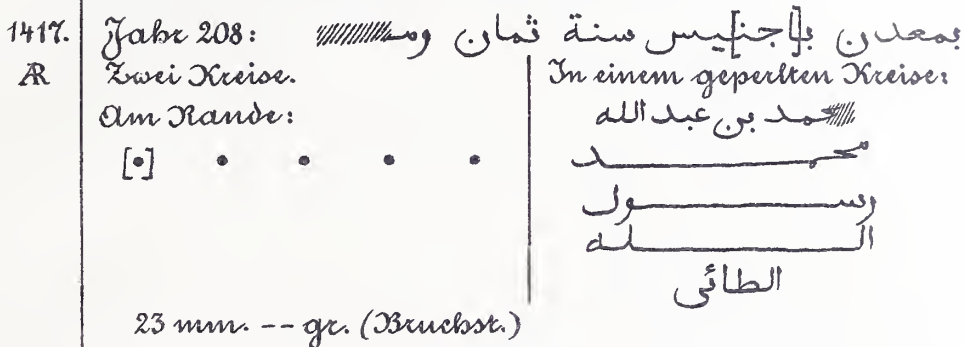 1417. Jahr 208: بمعدن با[جنـ]يس سنة ثمان ومـ
AR Zwei Kreise. In einem geperlten Kreise:
Am Rande: حمد بن عبد الله
[•] • • • • محمد
رسول
الله
الطائى
23 mm. -- gr. (Bruchst.)